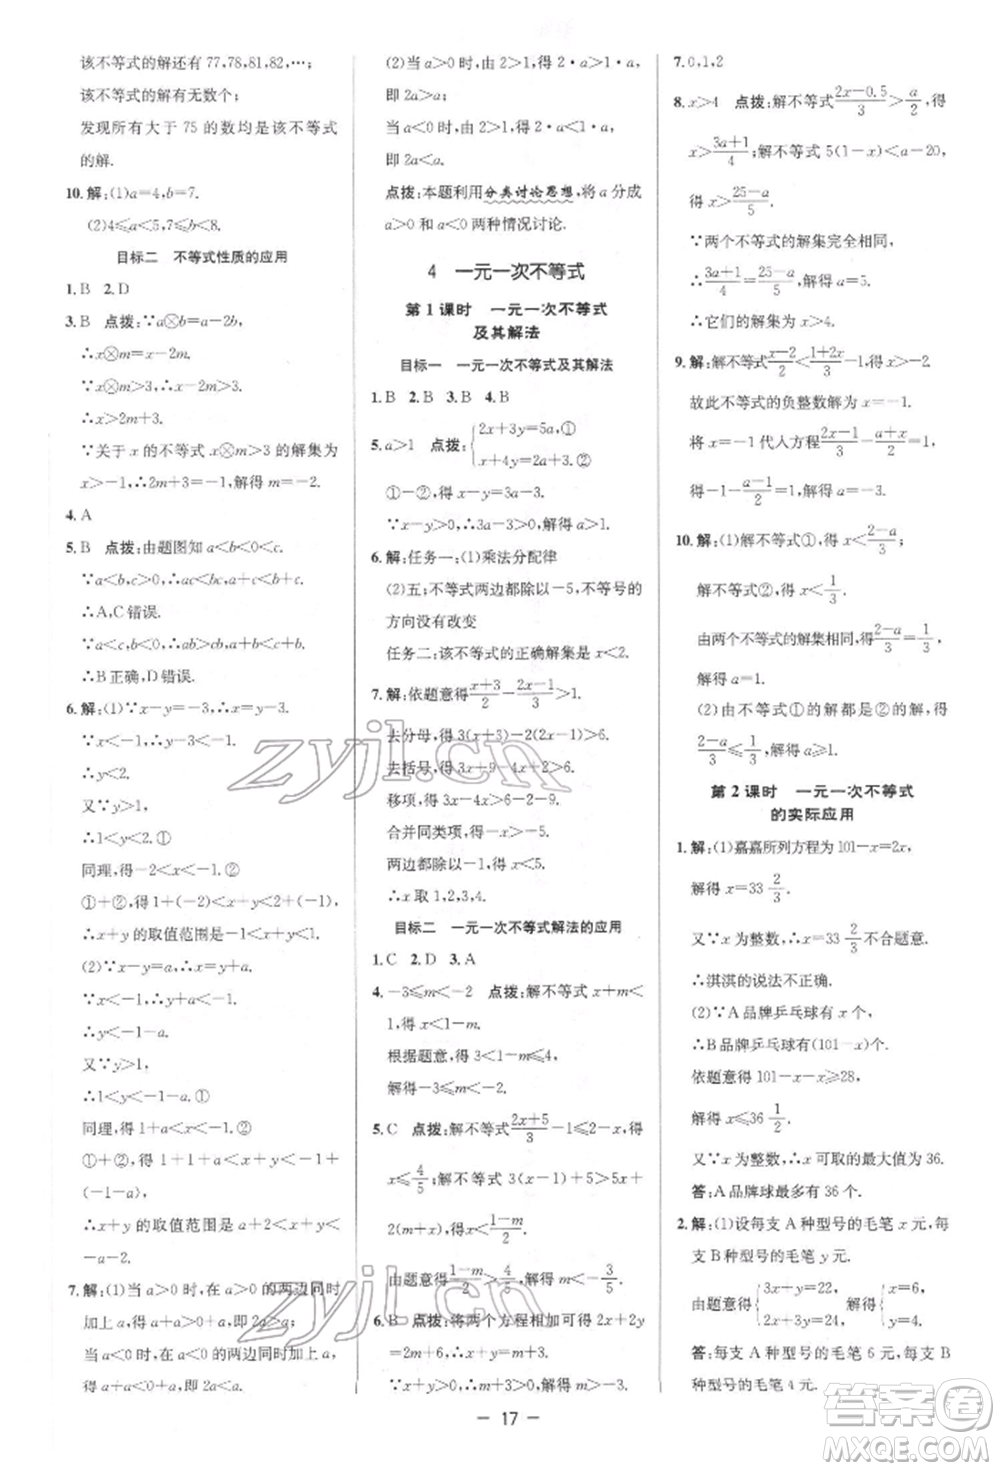 该不等式的解还有 77,78,81,82,…;
该不等式的解有无数个;
发现所有大于 75 的数均是该不等式
的解.
10. 解:(1)a=4,b=7.
(2)4≤a<5,7≤b<8.
目标二 不等式性质的应用
1. B 2. D
3. B 点拨:∵a⊗b=a-2b,
∴x⊗m=x-2m.
∵x⊗m>3,∴x-2m>3.
∴x>2m+3.
∵关于 x 的不等式 x⊗m>3 的解集为
x>-1,∴2m+3=-1,解得 m=-2.
4. A
5. B 点拨:由题图知 a<b<0<c.
∵a<b,c>0,∴a+c<b+c,ac<bc.
∴A,C 错误.
∵a<c,b<0,∴ab>cb,a+b<c+b.
∴B 正确,D 错误.
6. 解:(1)∵x-y=-3,∴x=y-3.
∵x<-1,∴y-3<-1.
∴y<2.
又∵y>1,
∴1<y<2.①
同理,得-2<x<-1.②
①+②,得-1<x+y<1.
∴x+y 的取值范围是-1<x+y<1.
(2)∵x-y=a,∴x=y+a.
∵x<-1,∴y+a<-1.
∴y<-1-a.
又∵y>1,
∴1<y<-1-a.①
同理,得 1+a<x<-1.②
①+②,得 1+a+1<x+y<-1+
(-1-a).
∴x+y 的取值范围是 a+2<x+y<
-a-2.
7. 解:(1)当 a>0 时,在 a>0 的两边同时
加上 a,得 a+a>0+a,即 2a>a;
当 a<0 时,在 a<0 的两边同时加上
a,得 a+a<0+a,即 2a<a.
(2)当 a>0 时,由 2>1,得 2·a>1·a,
即 2a>a;
当 a<0 时,由 2>1,得 2·a<1·a,
即 2a<a.
点拨:本题利用分类讨论思想,将 a 分成
a>0 和 a<0 两种情况讨论.
4 一元一次不等式
第 1 课时 一元一次不等式
及其解法
目标一 一元一次不等式及其解法
1. B 2. B 3. B 4. B
5. a>1 点拨:{2x+3y=5a,① x+4y=2a+3.②
①-②,得 x-y=3a-3.
∵x-y>0,∴3a-3>0,解得 a>1.
6. 解:任务一:(1)乘法分配律
(2)五;不等式两边都除以-5,不等号的
方向没有改变
任务二:该不等式的正确解集是 x<2.
7. 解:依题意得 (x+3)/2 - (2x-1)/3 >1.
去分母,得 3(x+3)-2(2x-1)>6.
去括号,得 3x+9-4x+2>6.
移项,得 3x-4x>6-2-9.
合并同类项,得-x>-5.
两边都除以-1,得 x<5.
∴x 取 1,2,3,4.
目标二 一元一次不等式解法的应用
1. C 2. D 3. A
4. -3≤m<-2 点拨:解不等式 x+m<
1,得 x<1-m.
根据题意,得 3<1-m≤4,
解得-3≤m<-2.
5. C 点拨:解不等式 (2x+5)/3 -1≤2-x,得
x≤4/5;解不等式 3(x-1)+5>5x+
2(m+x),得 x<(1-m)/2.
由题意得 (1-m)/2>4/5,解得 m<-3/5.
6. B 点拨:将两个方程相加可得 2x+2y
=k+4,则 x+y=(k+4)/2.
∵x+y>0,∴(k+4)/2>0,解得 k>-4.
7. 0,1,2
8. x>4 点拨:解不等式 (2x-0.5)/3 > a/2,得
x>(3a+1)/4;解不等式 5(1-x)<a-20,
得 x>(25-a)/5.
∵两个不等式的解集完全相同,
∴(3a+1)/4=(25-a)/5,解得 a=5.
∴它们的解集为 x>4.
9. 解:解不等式 (x-2)/2<(1+2x)/3,得 x>-2.
故此不等式的负整数解为 x=-1.
将 x=-1 代入方程 (x-1)/2-(a+x)/2=1,得
-1-(a-1)/2=1,解得 a=-3.
10. 解:(1)解不等式①,得 x<(2-a)/3.
解不等式②,得 x<1/3.
由两个不等式的解集相同,得(2-a)/3=1/3,
解得 a=1.
(2)由不等式①的解都是②的解,得
(2-a)/3≤1/3,解得 a≥1.
第 2 课时 一元一次不等式
的实际应用
1. 解:(1)嘉嘉所列方程为 101-x=2x,
解得 x=33 2/3.
又∵x 为整数,∴x=33 2/3 不合题意.
∴淇淇的说法不正确.
(2)∵A 品牌乒乓球有 x 个,
∴B 品牌乒乓球有(101-x)个.
依题意得 101-x-x≥28,
解得 x≤36 1/2.
又∵x 为整数,∴x 可取的最大值为 36.
答:A 品牌球最多有 36 个.
2. 解:(1)设每支 A 种型号的毛笔 x 元,每
支 B 种型号的毛笔 y 元.
由题意得{3x+y=22, 2x+3y=24, 解得{x=6, y=4.
答:每支 A 种型号的毛笔 6 元,每支 B
种型号的毛笔 4 元.
- 17 -
zyjl.cn
zyjl.cn
答案圈
MXQE.COM